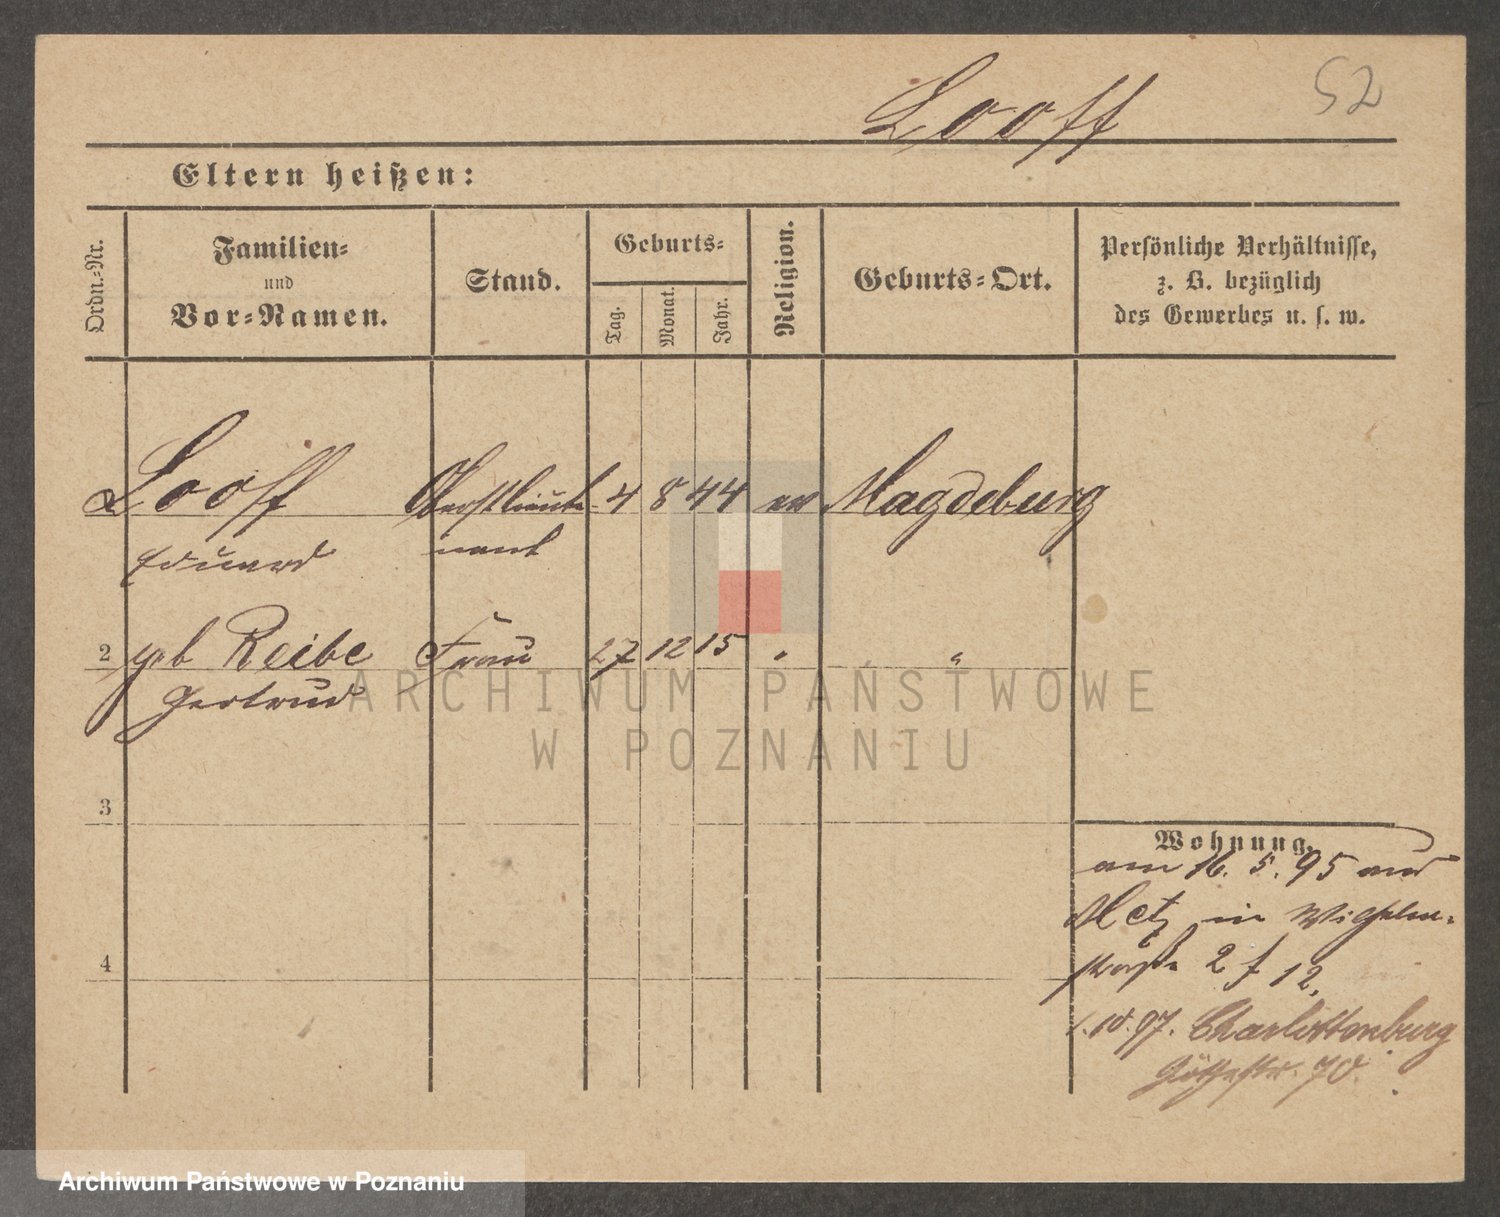 Looff
52
Eltern heißen:
Ordn.-Nr.
Familien-
und
Vor-Namen.
Stand.
Geburts-
Tag.
Monat.
Jahr.
Religion.
Geburts-Ort.
Persönliche Verhältnisse,
z. B. bezüglich
des Gewerbes u. s. w.
Looff Oberstlieute- 4 8 44 ev Magdeburg
Eduard nant
2 geb Reibe Frau 27 12 15 " "
Gertrud
ARCHIWUM PAŃSTWOWE
W POZNANIU
3
Wohnung.
am 16. 5. 95 aus
Metz in Wilhelm-
straße 2 f 12.
4
1. 10. 97. Charlottenburg
Göthestr. 70.
Archiwum Państwowe w Poznaniu